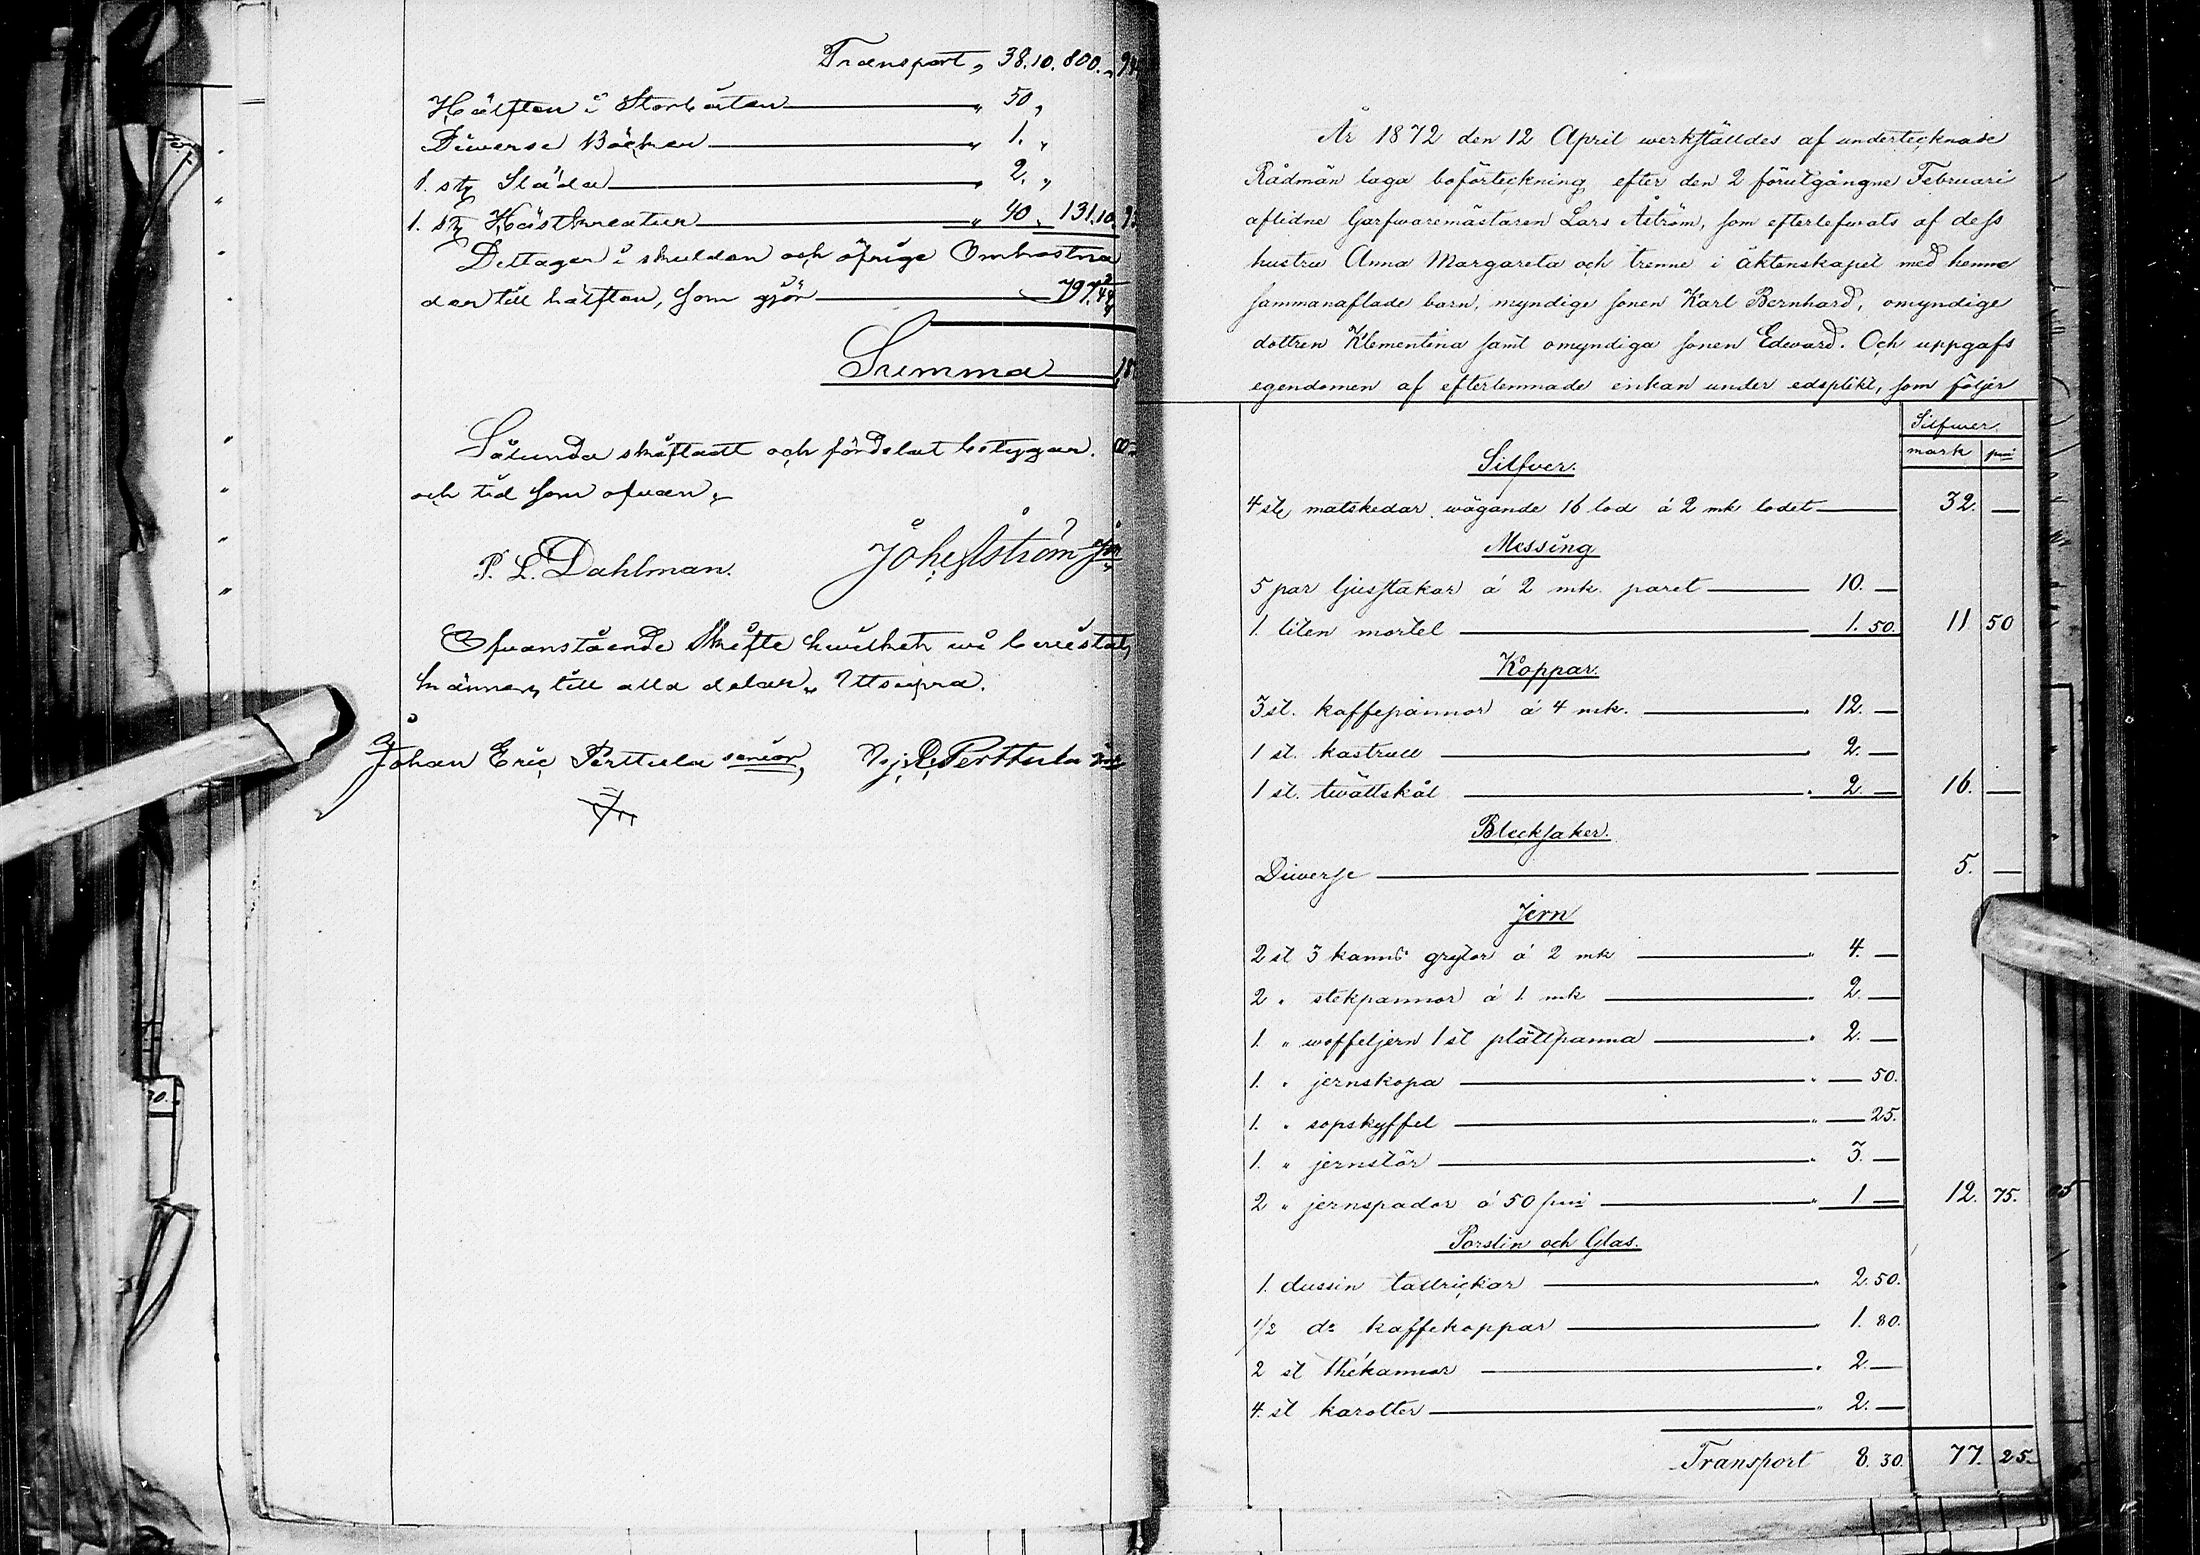 Transport „ 38.10. 800. „
Hälften i Storbåten „ 50 „
Diverse Böcker „ 1. „
1. stk Släda „ 2. „
1. stk Hästkreatur „ 40 „ 131.10.
Deltager i skulden och öfrige Omkostna
der till hälften, som gjör 797.
Summa
Sålunda skiftadt och fördelat betygar.
och tid som ofvan.
P. L. Dahlman. Joh. Åström
Ofvanstående Skifte hvilket wi bevistat,
känner till alla delar. Utsupra.
Johan Eric Perttula senior, Perttula
År 1872 den 12 April werkställdes af undertecknade
Rådmän laga boförteckning efter den 2 förutgångne Februari
aflidne Garfwaremästaren Lars Åström, som efterlefwats af dess
hustru Anna Margareta och trenne i äktenskapet med henne
sammanaflade barn, myndige sonen Karl Bernhard, omyndige
dottren Klementina samt omyndiga sonen Edward. Och uppgafs
egendomen af efterlemnade enkan under edsplikt, som följer
Silfwer
mark pni
Silfver.
4 stk matskedar wägande 16 lod á 2 mk lodet 32. —
Messing
5 par ljusstakar á 2 mk. paret 10. —
1. liten mortel 1. 50. 11 50
Koppar.
3 st. kaffepannor á 4 mk. 12. —
1 st. kastrull 2. —
1 st. twättskål 2. — 16. —
Blecksaker.
Diwerse 5. —
Jern
2 st 3 kanns grytor á 2 mk 4. —
2 „ stekpannor á 1. mk 2. —
1. „ woffeljern 1 st plättpanna 2. —
1. „ jernskopa — 50.
1. „ sopskyffel — 25.
1. „ jernstör 3. —
2 „ jernspador á 50 pni 1 — 12. 75.
Porslin och Glas.
1. dussin tallrickar 2. 50.
1/2 do kaffekoppar 1. 80.
2 st thékannor 2. —
4. st karotter 2. —
Transport 8. 30. 77. 25.